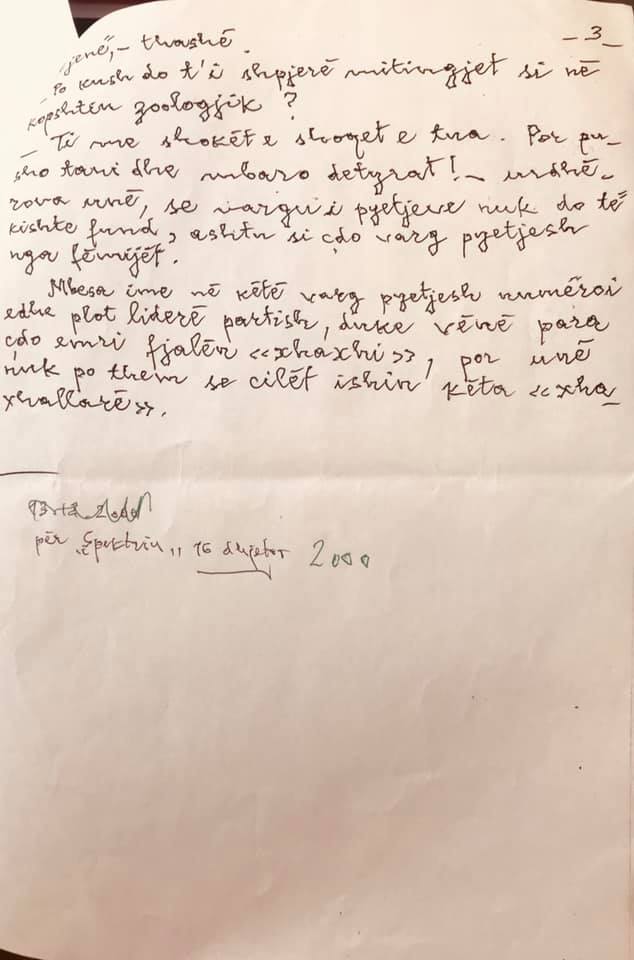 – 3 –
jenë, – thashë.
– Po kush do t'i shpjerë mitingjet si në
kopshtin zoologjik?
– Ti me shokët e shoqet e tua. Por pu-
sho tani dhe mbaro detyrat! – urdhë-
rova unë, se vargu i pyetjeve nuk do të
kishte fund, ashtu si çdo varg pyetjesh
nga fëmijët.
Mbesa ime në këtë varg pyetjesh numëroi
edhe plot liderë partish, duke vënë para
çdo emri fjalën «xhaxhi», por unë
nuk po them se cilët ishin këta «xha-
xhallarë».
për „Spektrin„ 16 dhjetor 2000